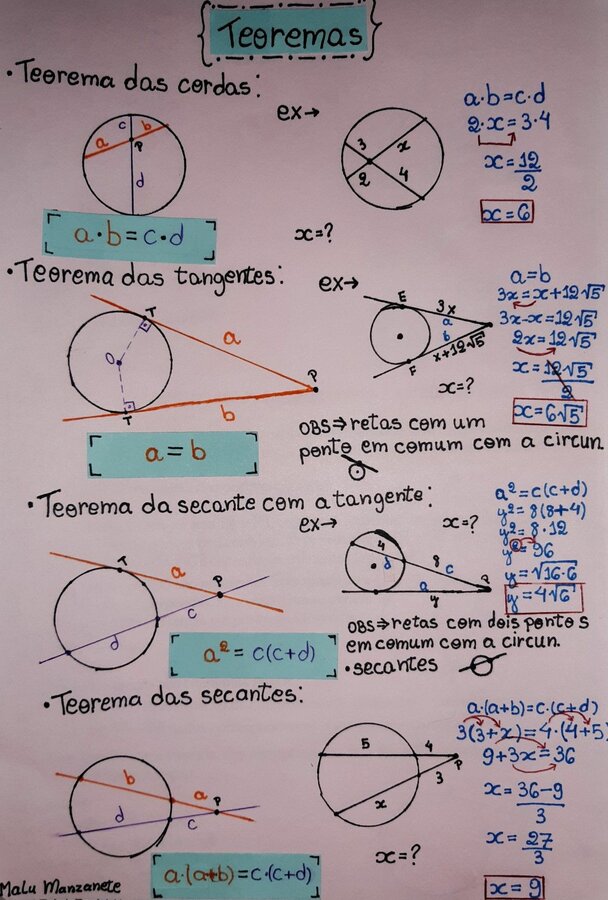 Teoremas
• Teorema das cordas:
c
b
a
P
d
a·b=c·d
ex→
3
x
2
4
x=?
a·b=c·d
2·x=3·4
x=12
2
x=6
• Teorema das tangentes:
T
a
O
P
b
T
a=b
ex→
E
3x
a
b
x+12√5
F
x=?
a=b
3x=x+12√5
3x-x=12√5
2x=12√5
x=12√5
2
x=6√5
OBS⇒retas com um
ponto em comum com a circun.
• Teorema da secante com a tangente:
T
a
P
c
d
a²=c(c+d)
ex→
x=?
4
d
8
c
a
y
a²=c(c+d)
y²=8(8+4)
y²=8·12
y²=96
y=√16·6
y=4√6
OBS⇒retas com dois pontos
em comum com a circun.
• secantes
• Teorema das secantes:
b
a
P
d
c
a·(a+b)=c·(c+d)
5
4
P
3
x
x=?
a·(a+b)=c·(c+d)
3(3+x)=4·(4+5)
9+3x=36
x=36-9
3
x=27
3
x=9
Malu Manzanete